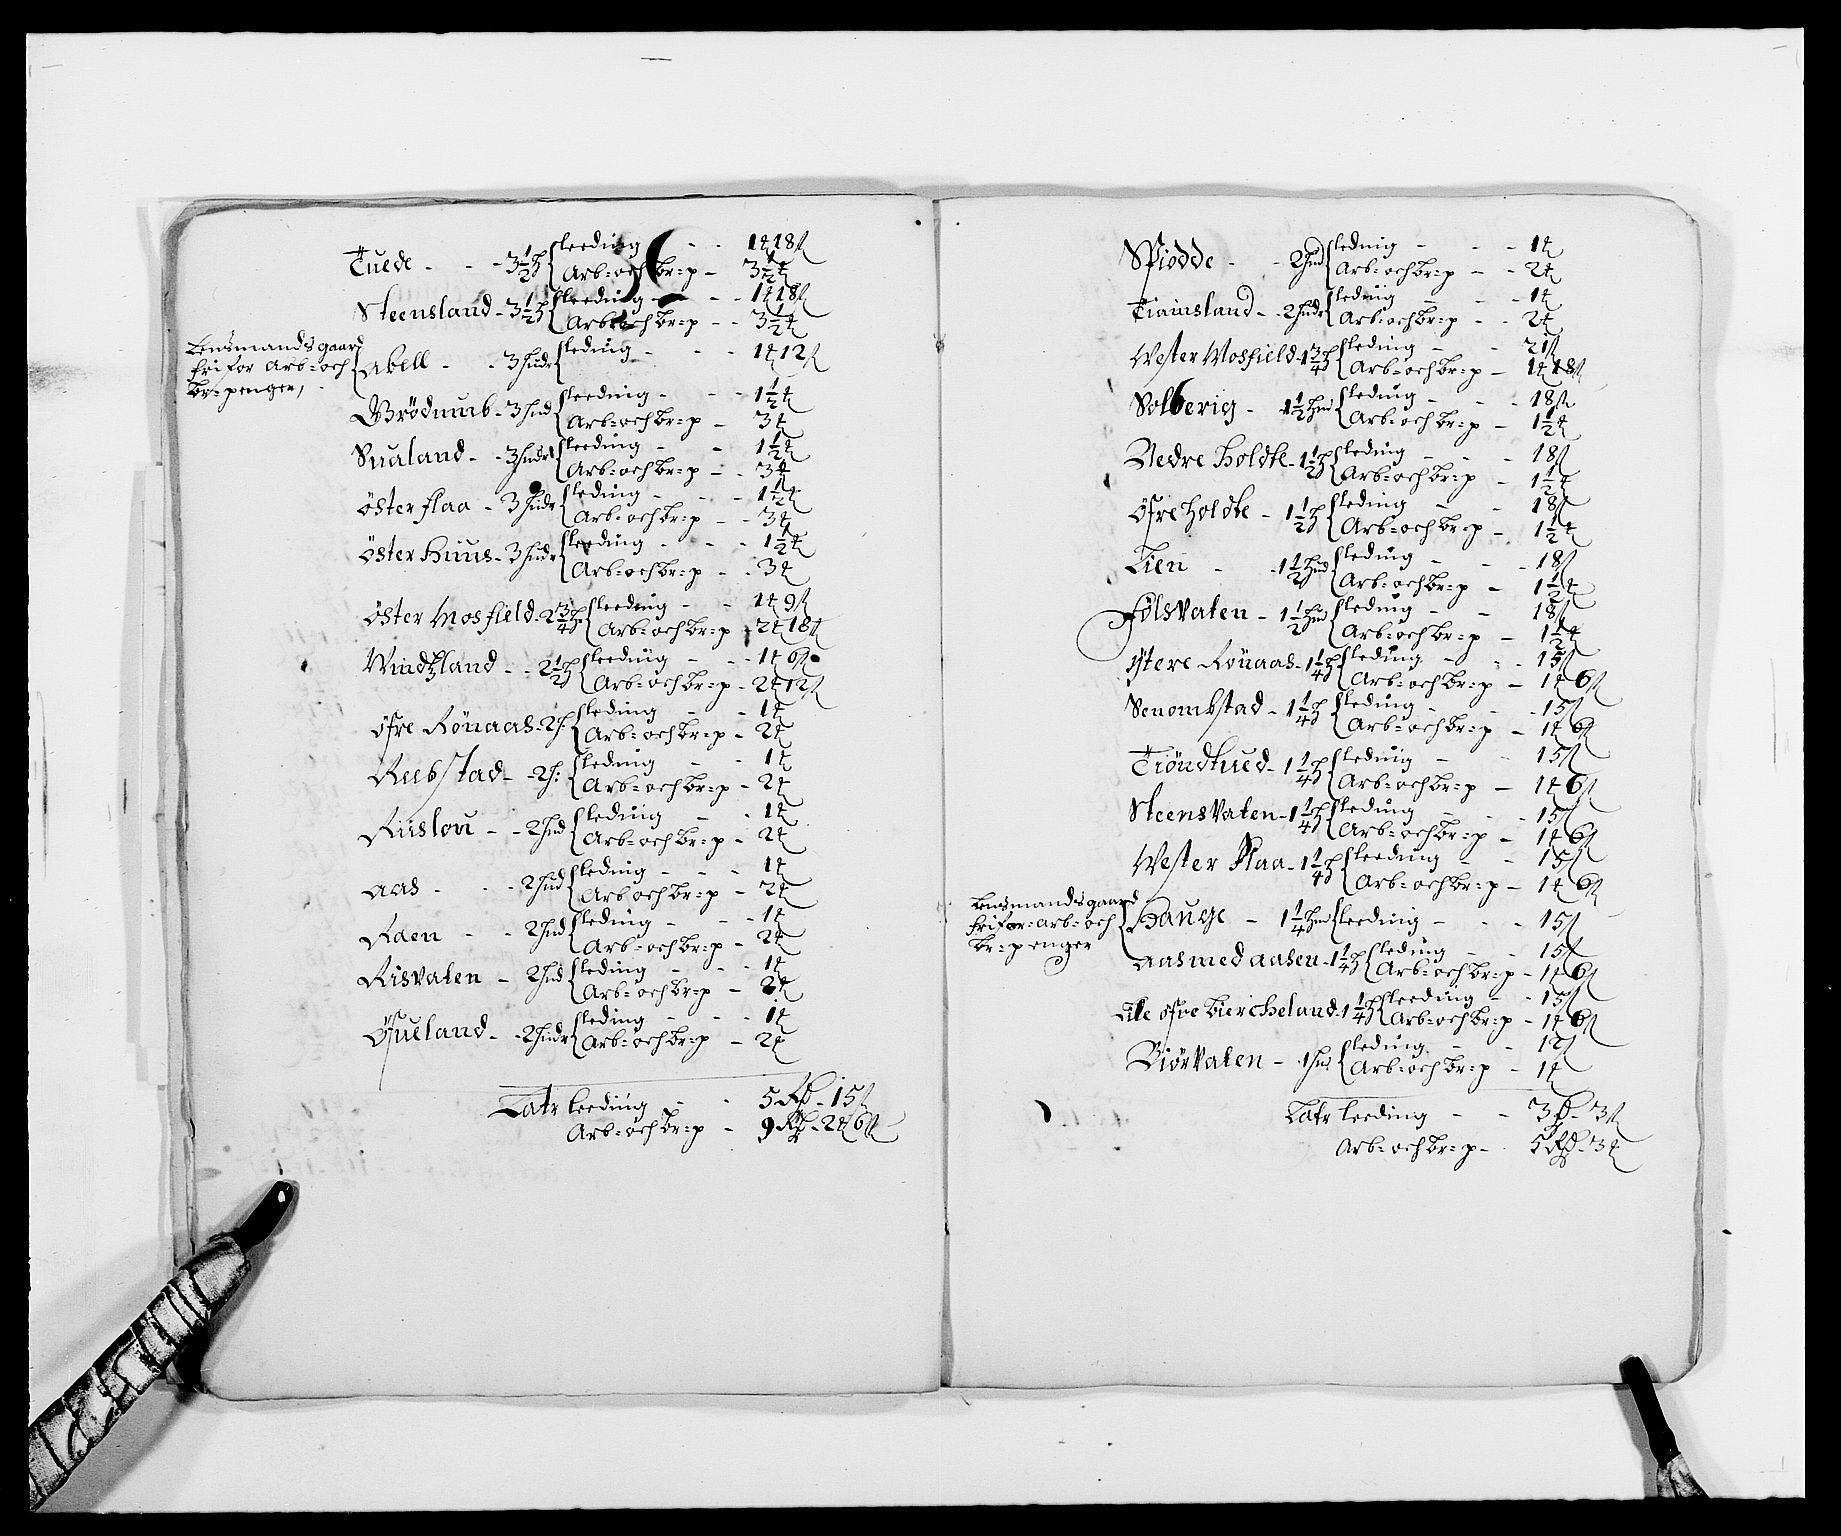 Tuede - - - 3½ h leeding - - - 1 t 18 ß
Arb= och br=p - 3½ t
Steensland - 3½ h leeding - - - 1 t 18 ß
Arb och br=p - - 3½ t
Lensmands gaard
fri for Arb= och
br=penger,
Abell - - 3 hudr leding - - - 1 t 12 ß
Brödumb - 3 hud leeding - - - 1½ t
Arb= och br=p - 3 t
Sualand - - 3 hudr leeding - - 1½ t
Arb= och br=p - - 3 t
öster flaa - 3 hudr leding - - - 1½ t
Arb= och br=p - - 3 t
öster huus - 3 hudr leeding - - - 1½ t
Arb= och br=p - - 3 t
öster Mosfield - 2¾ h leeding - - 1 t 9 ß
Arb= och br=p 2 t 18 ß
Windtzland - - 2½ h leeding - - - 1 t 6 ß
Arb= och br=p - 2 t 12 ß
öfre Rönaas - 2 h leding - - 1 t
Arb= och br=p - 2 t
Reebstad - - 2 h: leding - - 1 t
Arb= och br=p - 2 t
Riislou - - 2 hud leding - - 1 t
Arb= och br=p - 2 t
Aas - - - 2 hud leding - - - 1 t
Arb och br=p - 2 t
Raen - - 2 hud leding - - - 1 t
Arb= och br=p - 2 t
Risvaten - 2 hud leding - - - 1 t
Arb= och br=p - 2 t
Öfueland - - 2 hudr leding - - - 1 t
Arb= och br=p - 2 t
Latr leeding - - 5 Rd - 15 ß
Arb= och br=p - 9 Rd - 2 t 6 ß
Spiodde - - 2 hud leding - - - 1 t
Arb= och br=p - - 2 t
Tiamsland - - 2 hudr leding - - - 1 t
Arb= och br=p - - 2 t
Wester Mosfield - 1¾ h leding - - 21 ß
Arb= och br=p - 1 t 18 ß
Solberig - 1½ hud leding - - - 18 ß
Arb= och br=p - 1½ t
Nedre holdte - 1½ h leding - - - 18 ß
Arb= och br=p - 1½ t
öfre holdte - 1½ h leding - - 18 ß
Arb= och br=p - 1½ t
Lien - - 1½ hud leding - - - 18 ß
Arb= och br=p - 1½ t
Fölsvaten - 1½ hud leding - - 18 ß
Arb= och br=p - 1½ t
ÿtere Rönaas - 1¼ h leding - - 15 ß
Arb= och br=p - 1 t 6 ß
Senombstad - 1¼ h leding - - - 15 ß
Arb= och br=p - 1 t 6 ß
Tröndtued - 1¼ h leding - - 15 ß
Arb= och br=p - 1 t 6 ß
Steensvaten - 1¼ h leding - - - 15 ß
Arb= och br=p - 1 t 6 ß
Wester Flaa - 1¼ h leeding - - 15 ß
Arb= och br=p - 1 t 6 ß
Lensmands gaard
fri for= arb= och
br=penger
Hauge - 1¼ hud leeding - - - 15 ß
Aas med aasen - 1¼ h leding - - 15 ß
Arb= och br=p - 1 t 6 ß
Lile öfre biercheland - 1¼ h leeding - - 15 ß
Arb= och br=p - 1 t 6 ß
Biörvaten - 1 hud leding - - 12 ß
Arb= och br=p - 1 t
Latr leeding - - 3 Rd - 3 ß
Arb= och br=p - 5 Rd - 3 t